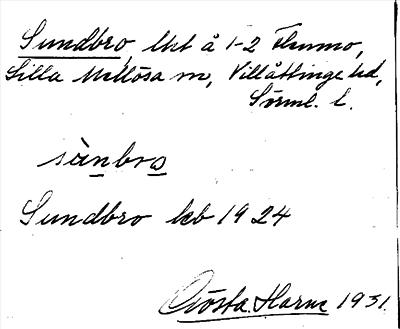 Sundbro, lht å 1-2 Flummo,
Lilla Mellösa sn, Villåttinge hd,
Sörml. l.
sùnbro
Sundbro kb 1924
Gösta Harne 1931.